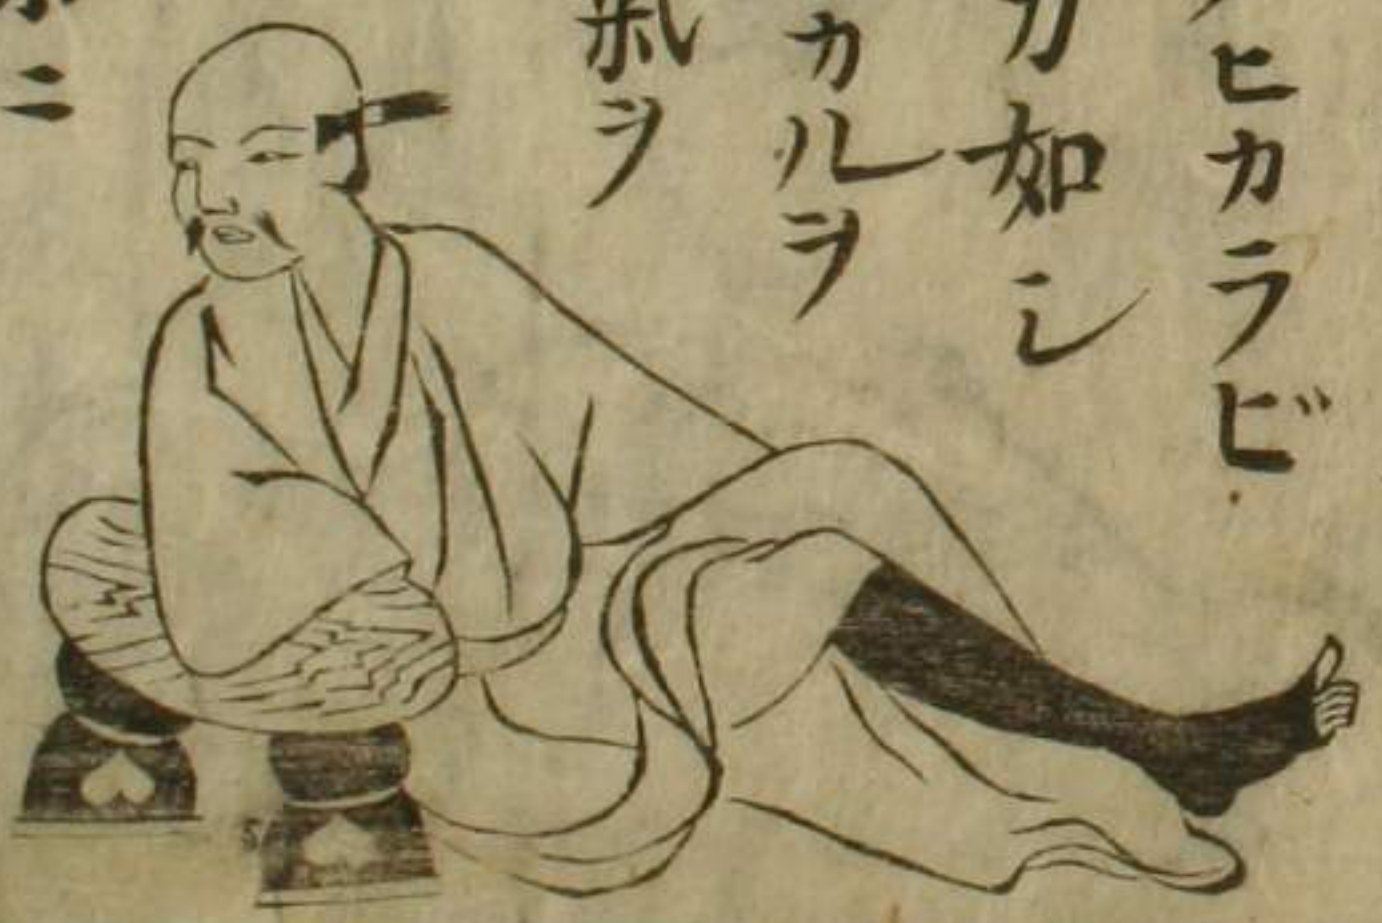 ヒカラビ
カ如シ
カルヲ
氣ヲ
ニ